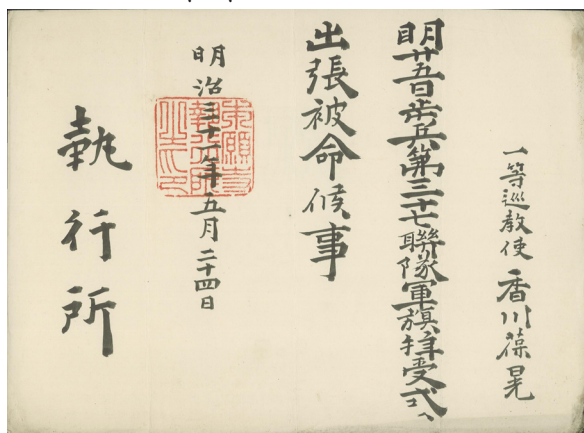 一等巡教使 香川葆晃
明廿五日歩兵第三十七聯隊軍旗拝受式ヘ
出張被命候事
明治三十一年五月二十四日
本願寺
執行所
之印
執行所